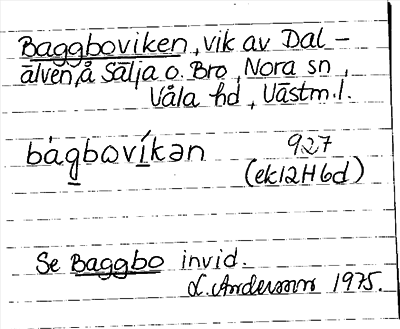 Baggboviken, vik av Dal-
älven, å Sälja o. Bro, Nora sn,
Våla hd, Västm.l.
bàgbovíkən 927
(ek12H6d)
Se Baggbo invid.
L. Andersson 1975.